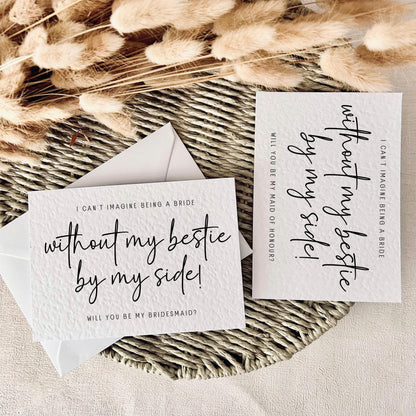 I CAN'T IMAGINE BEING A BRIDE
without my bestie
by my side!
WILL YOU BE MY BRIDESMAID?
I CAN'T IMAGINE BEING A BRIDE
without my bestie
by my side!
WILL YOU BE MY MAID OF HONOUR?